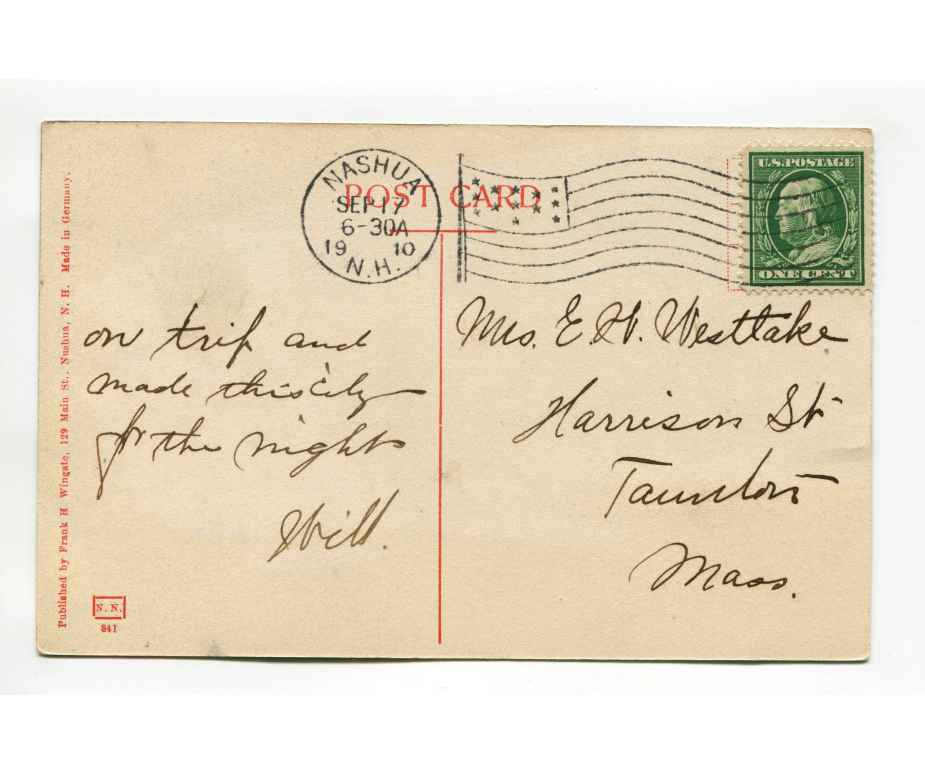 POST CARD
NASHUA
SEP 17
6-30A
19 10
N.H.
U.S. POSTAGE
ONE CENT
on trip and
made this city
for the night
Will.
Mrs. E. H. Westlake
Harrison St
Taunton
Mass.
Published by Frank H. Wingate, 129 Main St., Nashua, N. H. Made in Germany.
N. N.
841